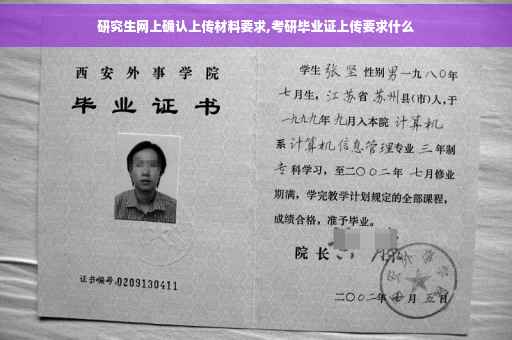 研究生网上确认上传材料要求,考研毕业证上传要求什么
西安外事学院
毕业证书
证书编号:0209130411
学生 张坚 性别男一九八〇年
七月生,江苏省苏州县(市)人,于
一九九九年九月入本院 计算机
系 计算机信息管理专业 三 年制
专科学习,至二〇〇二年 七月修业
期满,学完教学计划规定的全部课程,
成绩合格,准予毕业。
院长
二〇〇二年 月 五日